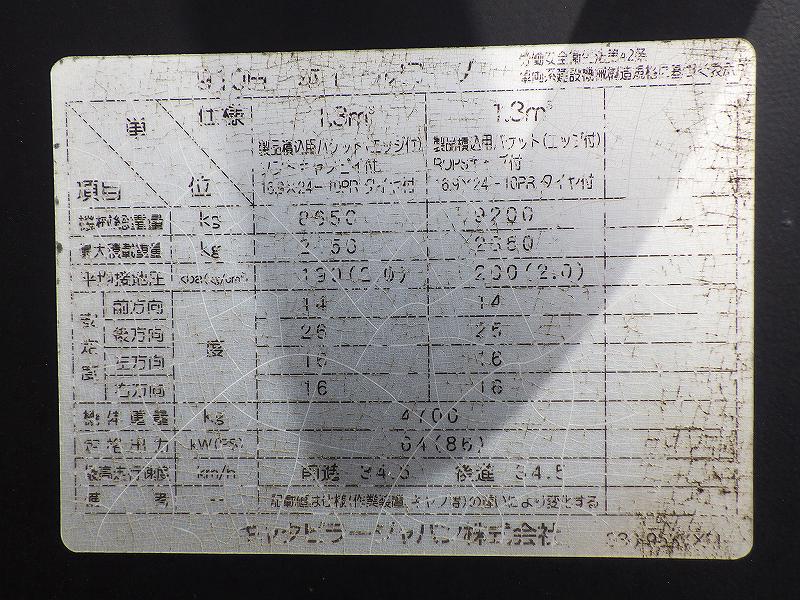 労働安全衛生法第42条
車両系建設機械製造規格に基づく表示
単 仕様 1.3m³ 1.3m³
製品積込用バケット(エッジ付) 製品積込用バケット(エッジ付)
付 ROPSキャブ付
16.9×24-10PR タイヤ付 16.9×24-10PR タイヤ付
項目 位
機械総重量 kg 9200
最大積載重量 kg
平均接地圧 190(2.0) 200(2.0)
前方向 14 14
安定度 後方向 度 26 25
左方向 16 16
右方向 16 16
機体重量 kg
定格出力 kW(PS) 64(86)
最高走行速度 km/h 前進 34.5 後進 34.5
備考 記載値は仕様(作業装置、キャブ等)の違いにより変化する
キャタピラージャパン株式会社